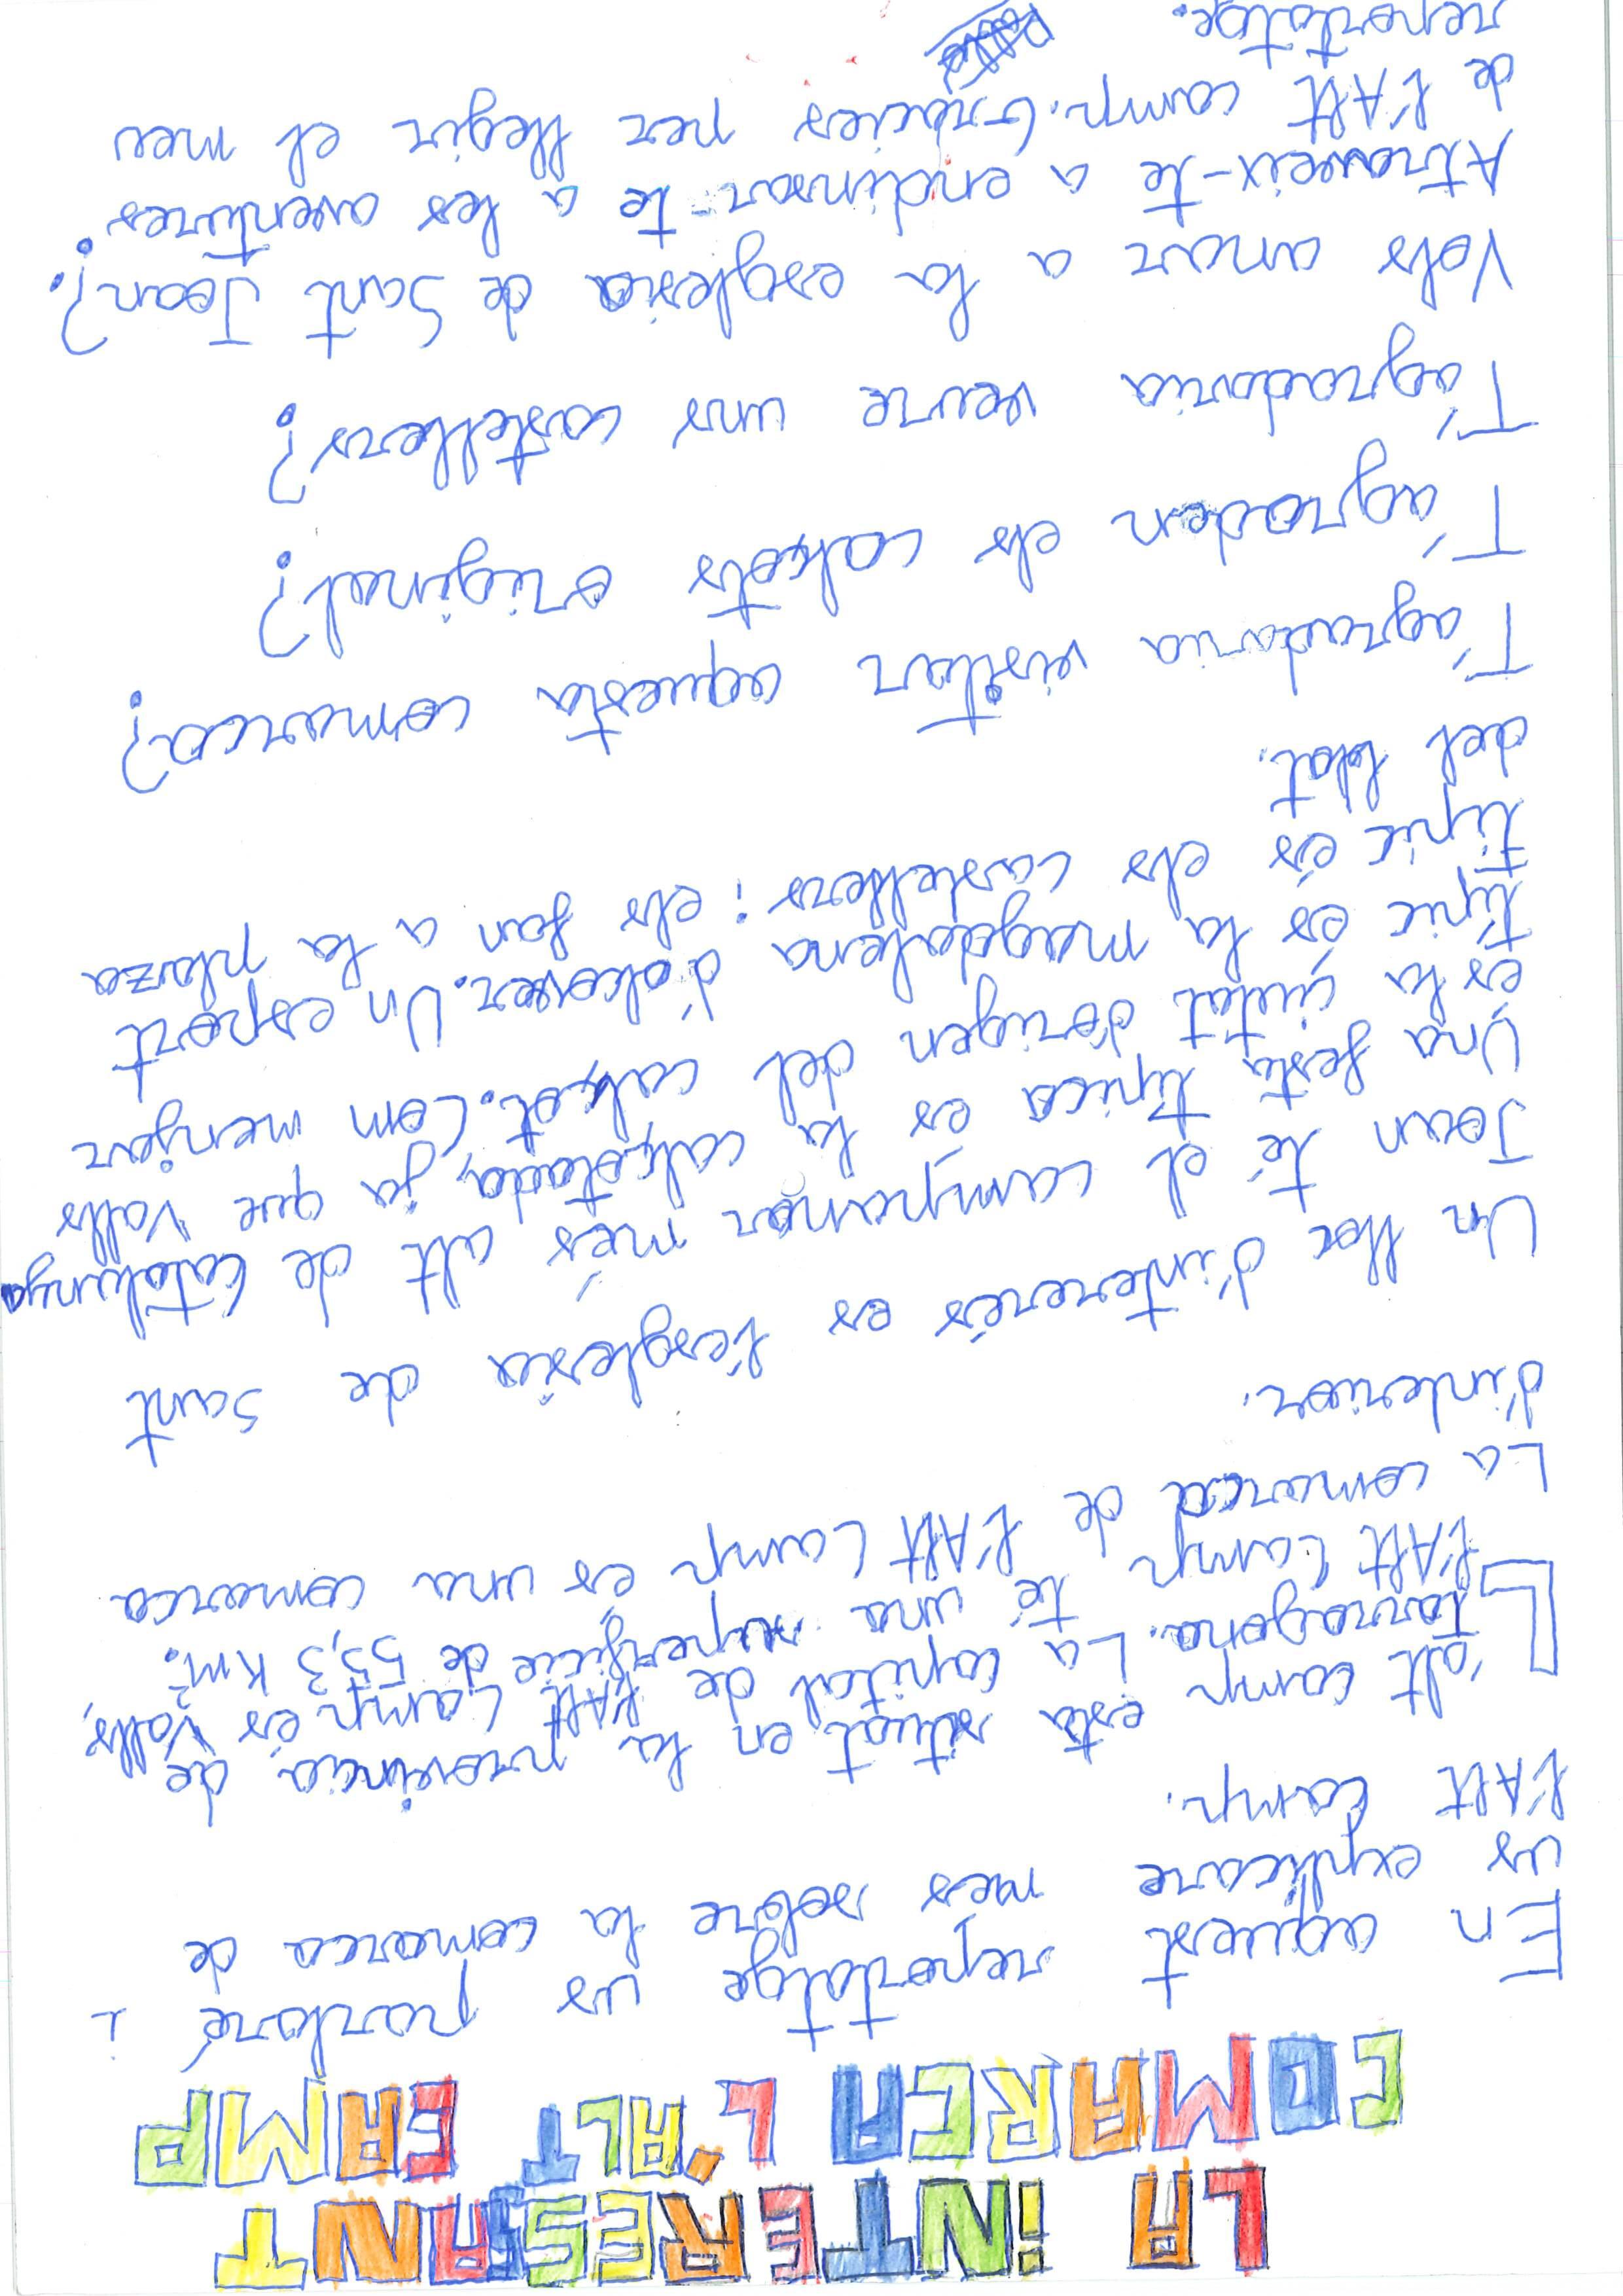 LA INTERESANT
COMARCA L'ALT CAMP
En aquest reportatge us parlaré i
us explicare més sobre la comarca de
l'Alt Camp.
L'alt camp esta situat en la provincia de
Tarragona. La capital de l'Alt Camp és Valls,
l'Alt Camp té una superficie de 55,3 Km².
La comarca de l'Alt Camp és una comarca
d'interior.
Un lloc d'interès es l'esglesia de Sant
Joan té el campanar més alt de Catalunya
Una festa típica és la calçotada, ja que Valls
és la çiutat d'origen del calçot. Com menjar
típic és la magdalena d'alcover. Un esport
típic és els castellers: els fan a la plaza
del blat.
T'agradaria visitar aquesta comarca?
T'agraden els calçots original?
T'agradaria veure uns castellers?
Vols anar a la esglesia de Sant Joan?
Atraveix-te a endinsar-te a les aventures
de l'Alt camp. Gràcies per llegir el meu
reportatge.